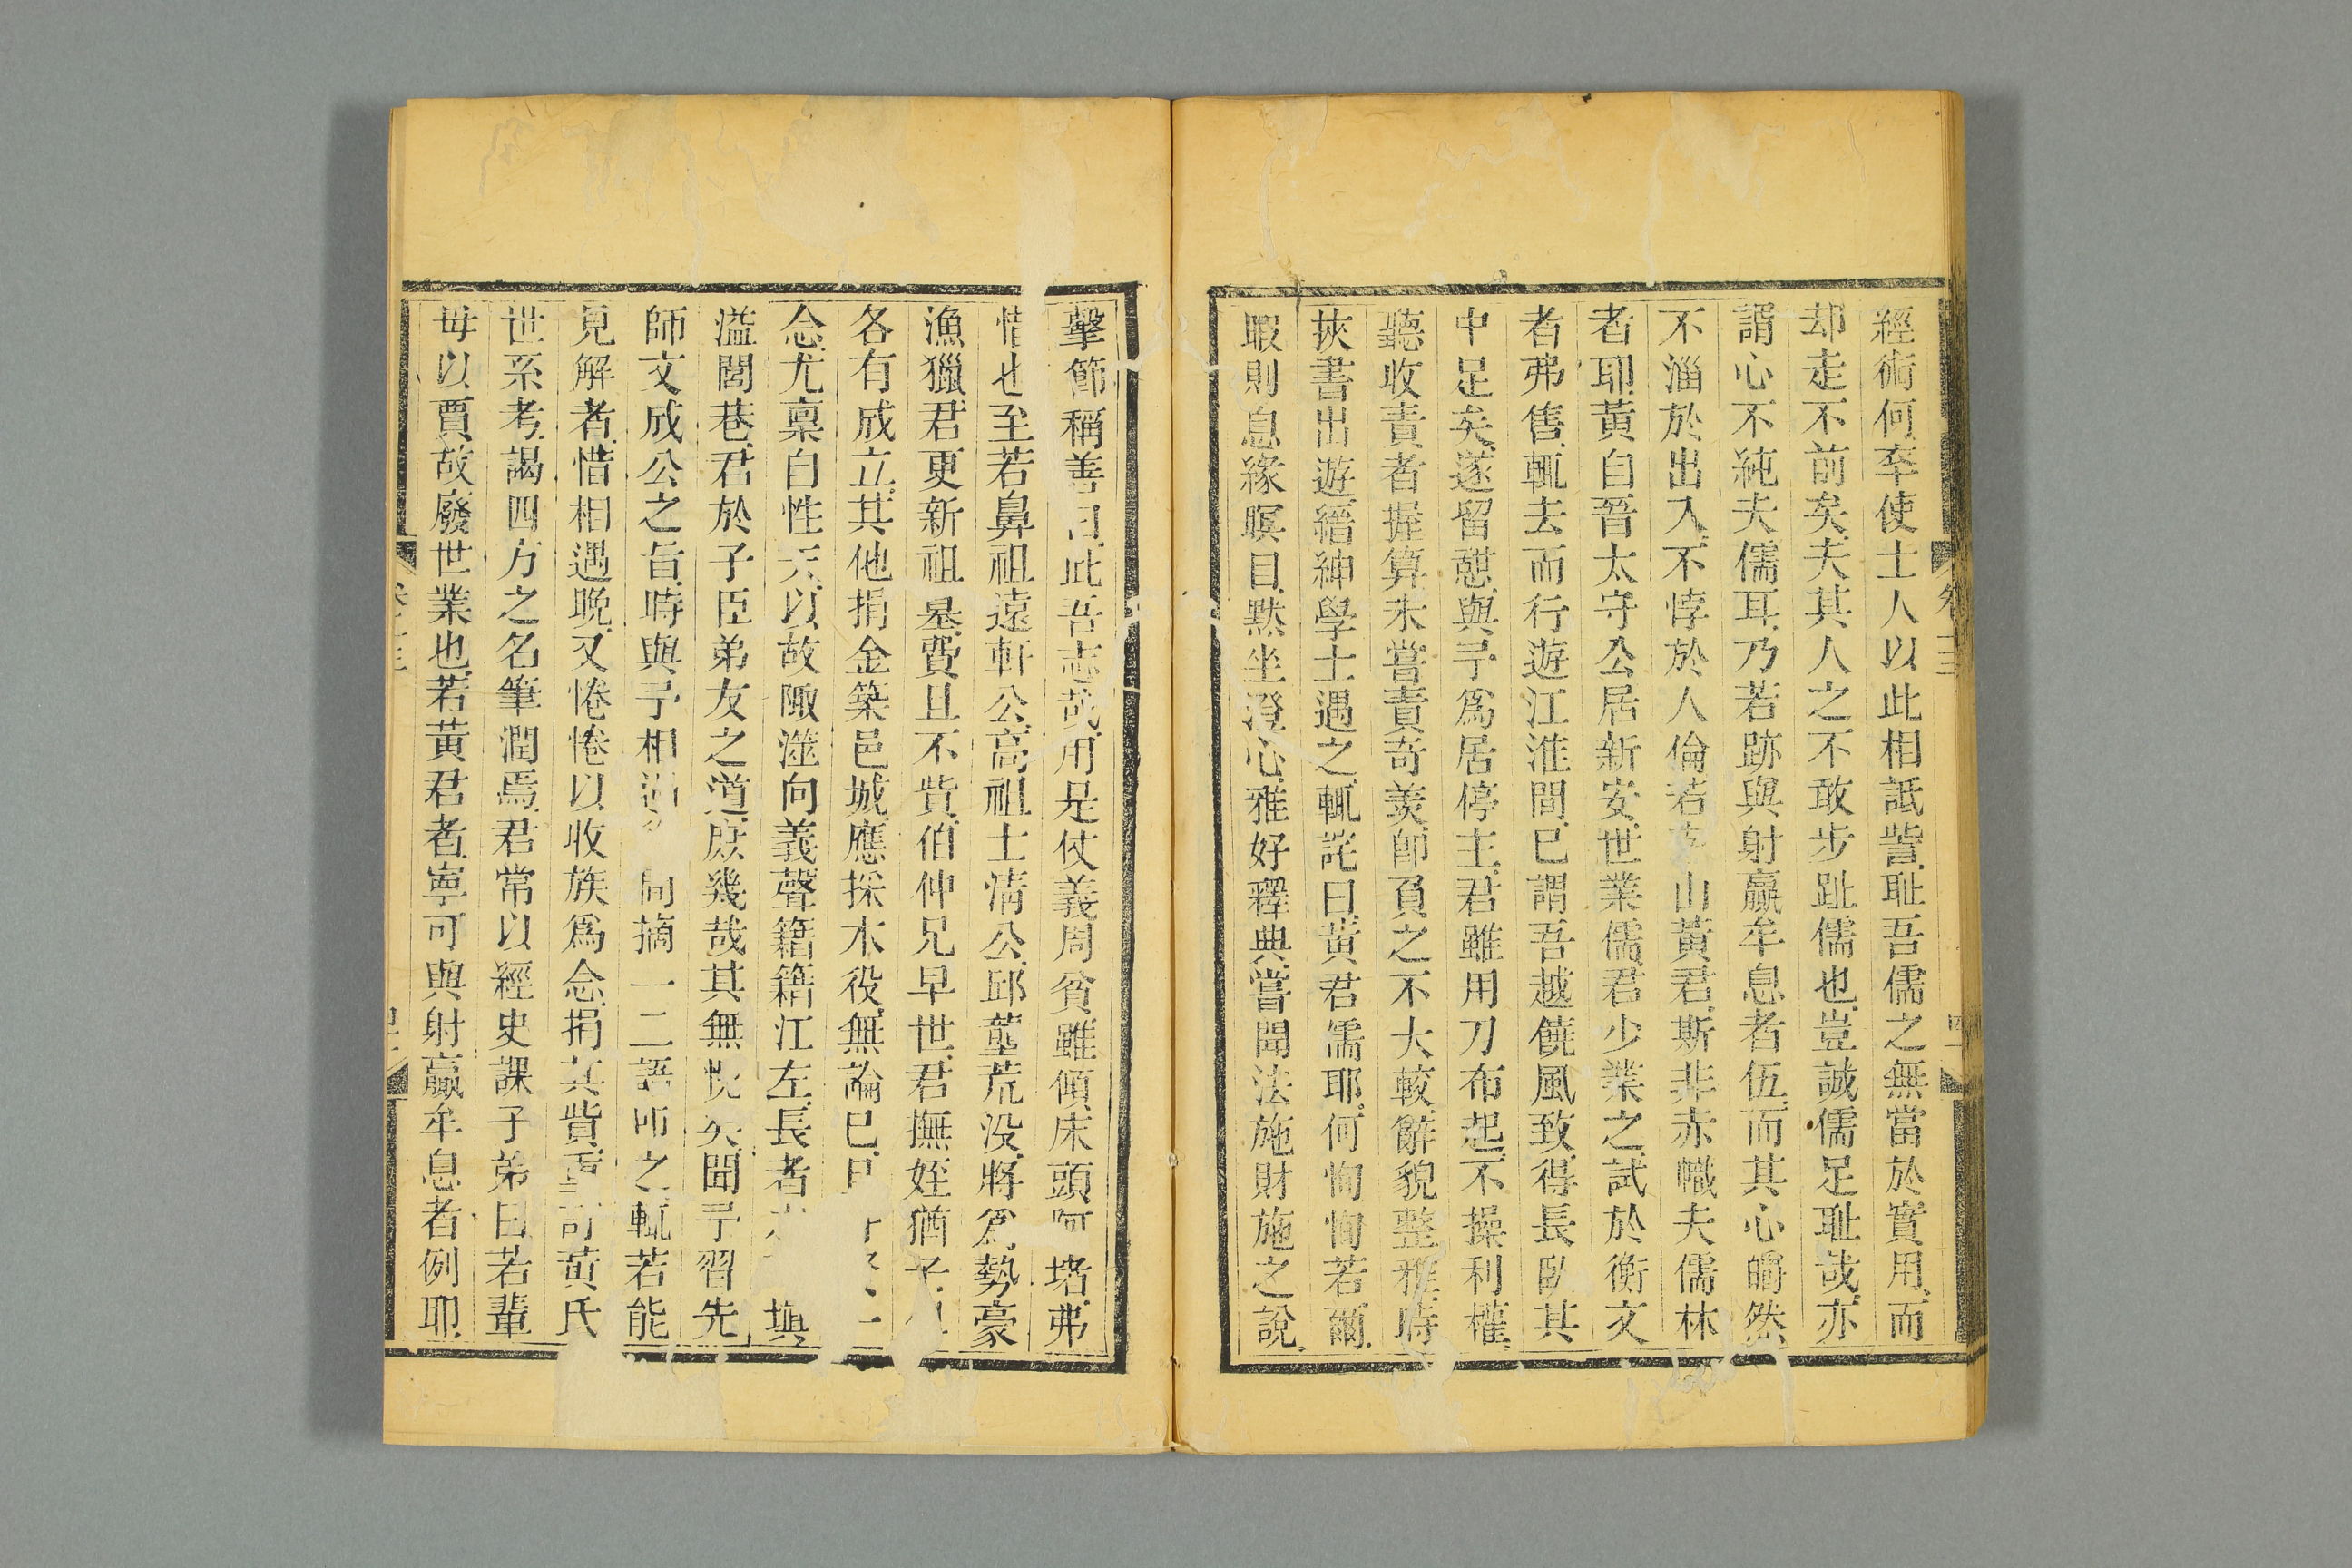 經術何卒使士人以此相詆訾耻吾儒之無當於實用而
却走不前矣夫其人之不敢步趾儒也豈誠儒足耻哉亦
謂心不純夫儒耳乃若跡與射贏牟息者伍而其心皭然
不淄於出入不悖於人倫若 山黃君斯非赤幟夫儒林
者耶黃自吾太守公居新安世業儒君少業之試於衡文
者弗售輒去而行遊江淮間已謂吾越饒風致得長臥其
中足矣遂留憇與予爲居停主君雖用刀布起不操利權
聽收責者握算未嘗責奇羨即負之不大較辭貌整雅時
挾書出遊縉紳學士遇之輒詫曰黃君儒耶何恂恂若爾
暇則息緣瞑目默坐澄心雅好釋典嘗聞法施財施之說
擊節稱善曰此吾志哉用是仗義周貧雖傾床頭阿堵弗
惜也至若鼻祖遠軒公高祖士淸公邱壟荒没將爲勢豪
漁獵君更新祖墓費且不貲伯仲兄早世君撫姪猶子
各有成立其他捐金築邑城應採木役無論已
念尤稟自性天以故陬澨向義聲籍籍江左長者 填
溢閭巷君於子臣弟友之道庶幾哉其無忱矣聞予習先
師文成公之旨時與予相 摘一二語 之輒若能
見解者惜相遇晚又惓惓以收族爲念捐其貲 黃氏
世系考謁四方之名筆潤焉君常以經史課子弟曰若輩
毋以賈故廢世業也若黃君者寧可與射贏牟息者例耶